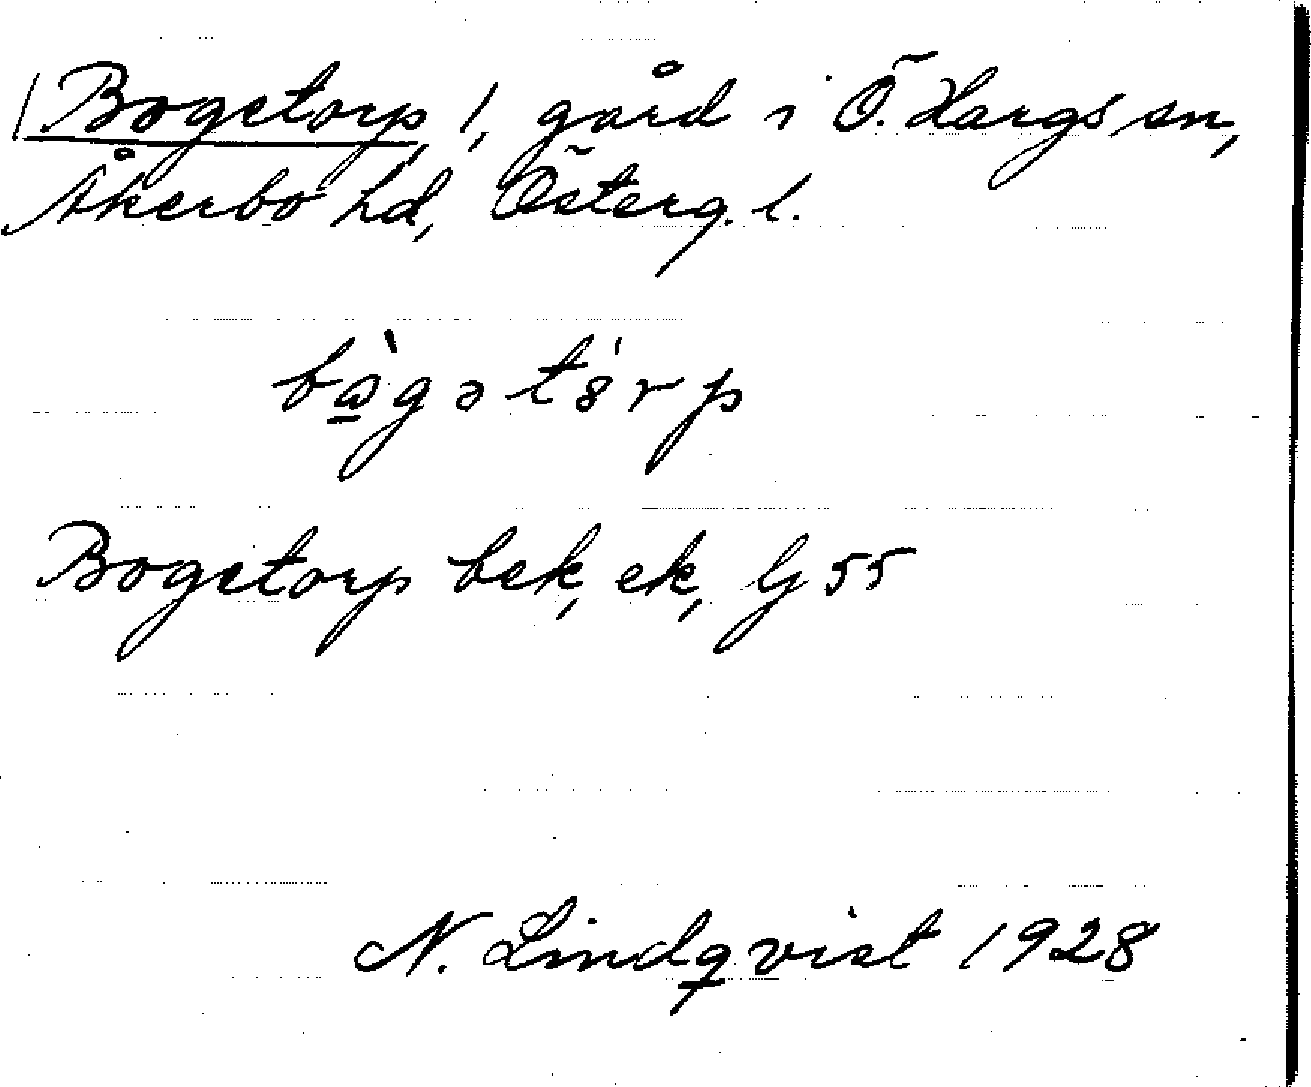 /Bogetorp/, gård i Ö. Hargs sn,
Åkerbo hd, Österg. l.
bàgətȯrp
Bogetorp bek, ek, G 55
N. Lindqvist 1928